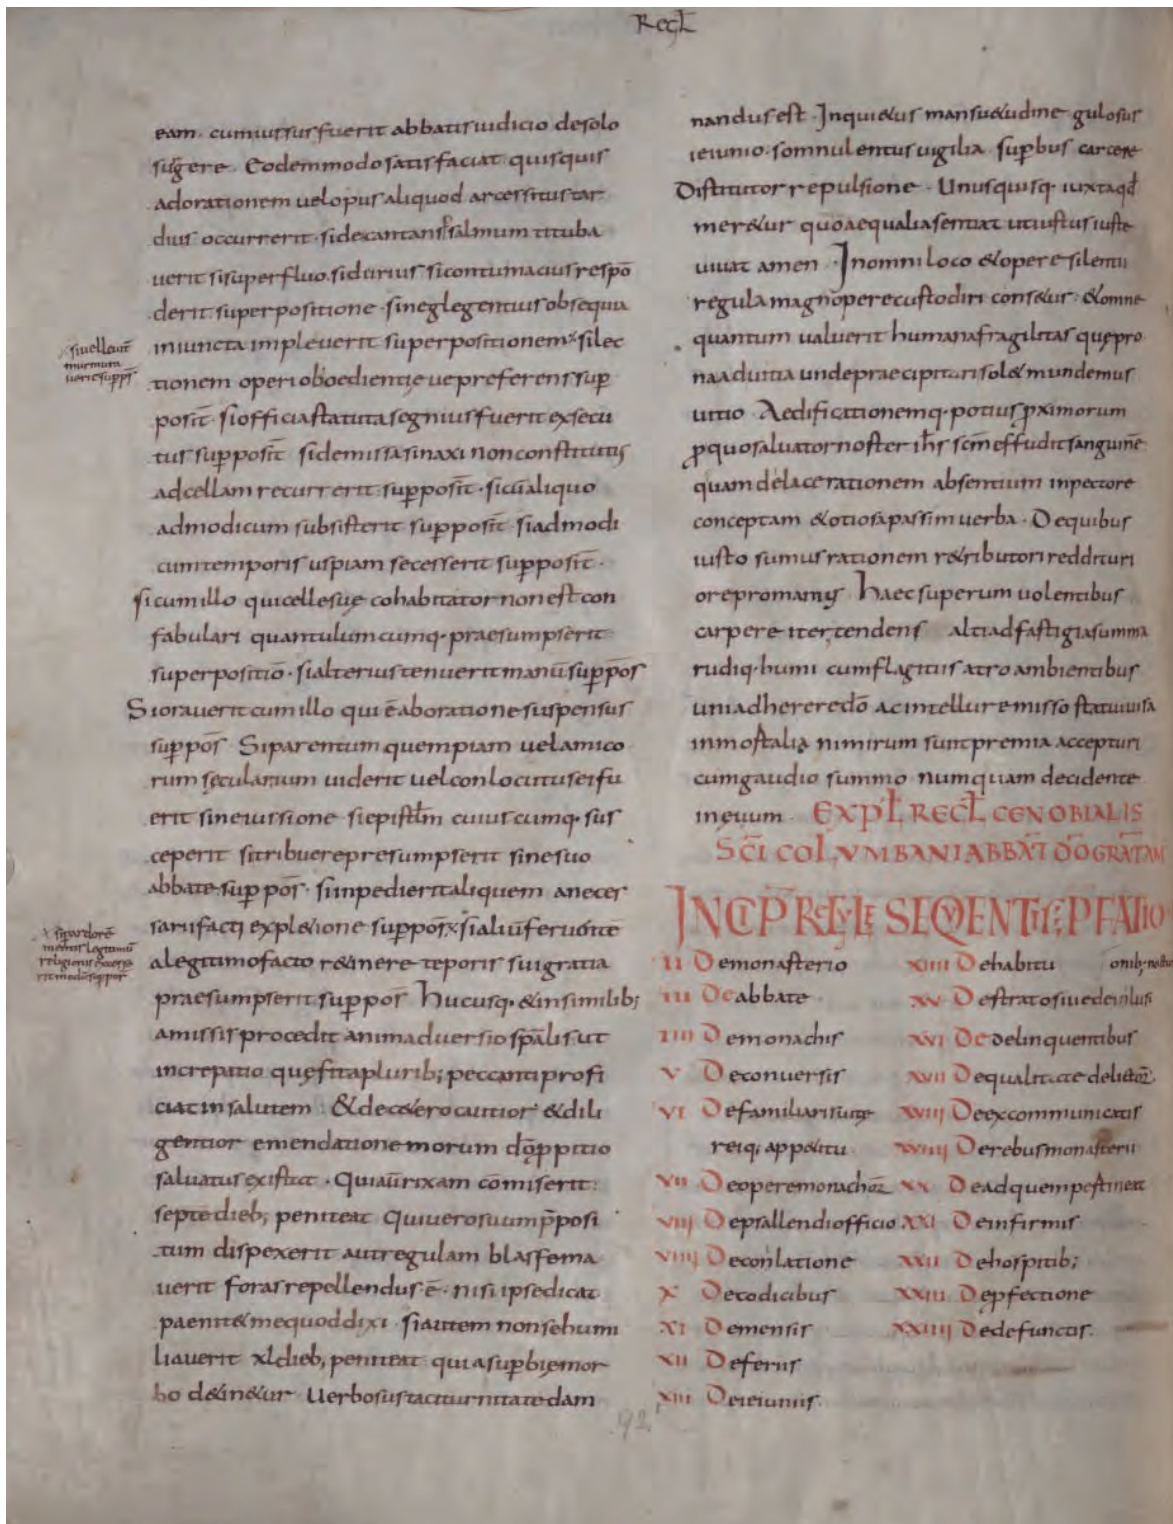 Reg͞l
eam · cum iussus fuerit abbatis iudicio desolo
surgere · Eodem modo satisfaciat quisquis
ad orationem vel opus aliquod arcessitus tar
dius occurrerit · si decantans psalmum tituba
uerit si superfluo · si durius si contumacius respō
derit · superpositione · si neglegentius obsequia
iniuncta impleverit superpositionem · silec
tionem operi oboedientiȩ ue preferens sup
posiť · si officia statuta segnius fuerit exsecu
tus supposiť si demissa sinaxi non constitutis
ad cellam recurrerit · supposiť · si cū aliquo
admodicum subsisterit supposiť · si admodi
cum temporis uspiam secesserit supposiť ·
si cum illo qui cellȩ suȩ cohabitator non est con
fabulari quantulumcumq· praesumpserit
superpositio · si alterius tenuerit manū suppos
Si orauerit cum illo qui ē ab oratione suspensus
suppos Si parentum quempiam vel amico
rum sȩcularium uiderit vel conlocutus ei fu
erit sine iussione si epistłm cuiuscumq· sus
ceperit si tribuere presumpserit sine suo
abbate suppos · si inpedierit aliquem a neces
sarii facti expl&ione suppos si aliū feruore
a legitimo facto r&inere teporis sui gratia
praesumpserit suppos hucusq· & in similib;
amissis procedit animaduersio spālis ut
increpatio quȩ fit a plurib; peccanti profi
ciat in salutem · & dec&ero cautior & dili
gentior emendatione morum dō ppitio
saluatus existat · Qui aū rixam cōmiserit ·
septē dieb; peniteat Qui uero suum pposi
tum dispexerit aut regulam blasfema
uerit foras repellendus ē · nisi ipse dicat
paenit& me quod dixi · si autem non se humi
liauerit xl dieb; peniteat quia supbiȩ mor
bo d&in&ur Uerbosus taciturnitate dam
si uel leuit
murmura
uerit suppos
si pardore
mentis legitimū
religionis
rit modū suppos
nandus est · Inqui&us mansu&udine gulosus
ieiunio · somnulentus uigilia supbus carcere
Distitutor repulsione · Unusquisq· iuxta qđ
mer&ur quoaequalia sentiat ut iustus iuste
uiuat amen · In omni loco & opere silentii
regula magnopere custodiri cons&ur · & omne
quantum ualuerit humana fragilitas quȩ pro
na ad uitia unde praecipitari sol& mundemus
uitio Aedificationemq· potius pximorum
p quo saluator noster iħs scm̄ effudit sanguinē
quam delacerationem absentium in pectore
conceptam & otiosa passim uerba · De quibus
iusto sumus rationem r&ributori reddituri
ore promamus haec superum uolentibus
carpere iter tendens alti ad fastigia summa
rudiq· humi cum flagitiis atro ambientibus
uni adhererē dō ac in tellure misso statu uisa
inmortalia nimirum sunt premia accepturi
cum gaudio summo numquam decidente
in ȩuum EXPŁ REGŁ CENOBIALIS
SC̄I COLVMBANI ABBAT̄I DŌ GRATIAM
INCIP REGULE SEQUENTIS PFATIO
II De monasterio
III De abbate
IIII De monachis
V De conuersis
VI De familiaris uite
reiq; app&itu
VII De opere monachoꝝ
VIII De psallendi officio
VIIII De conlatione
X De codicibus
XI De mensis
XII De feriis
XIII De ieiuniis
XIIII De habitu
XV De strato siue de
XVI De delinquentibus
XVII De qualitate delictoꝝ
XVIII De excommunicatis
XVIIII De rebus monasterii
XX De ad quem pestineat
XXI De infirmis
XXII De hospitib;
XXIII De pfectione
XXIIII De defunctis
92